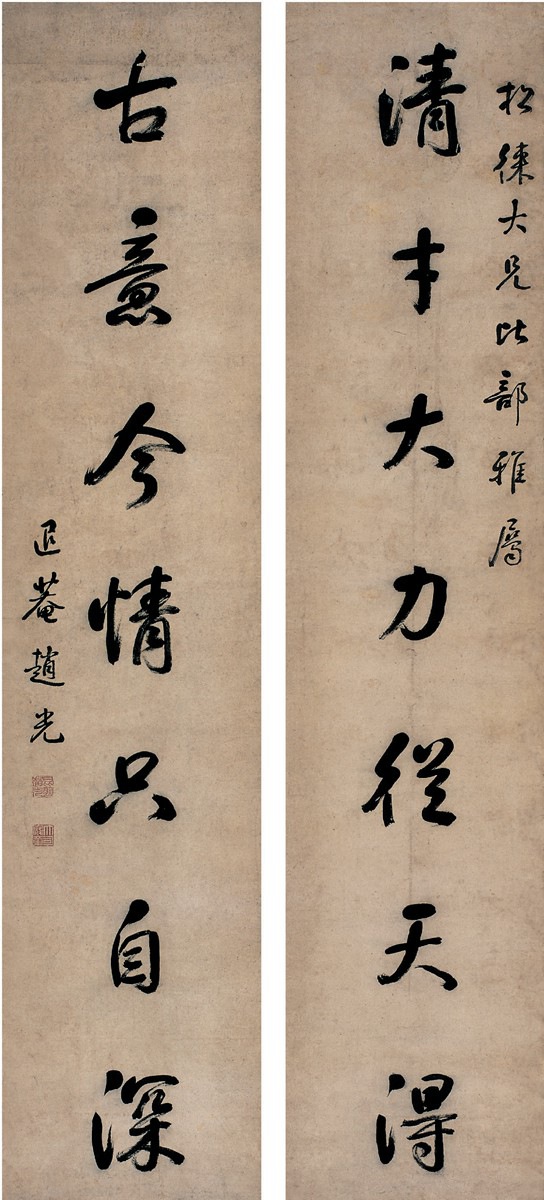 松徠大兄比部雅屬
清才大力從天得
古意今情只自深
退菴趙光